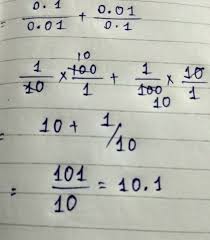 = 0.1/0.01 + 0.01/0.1
1/10 × 100/1 10 + 1/100 10 × 10/1
= 10 + 1/10
= 101/10 = 10.1